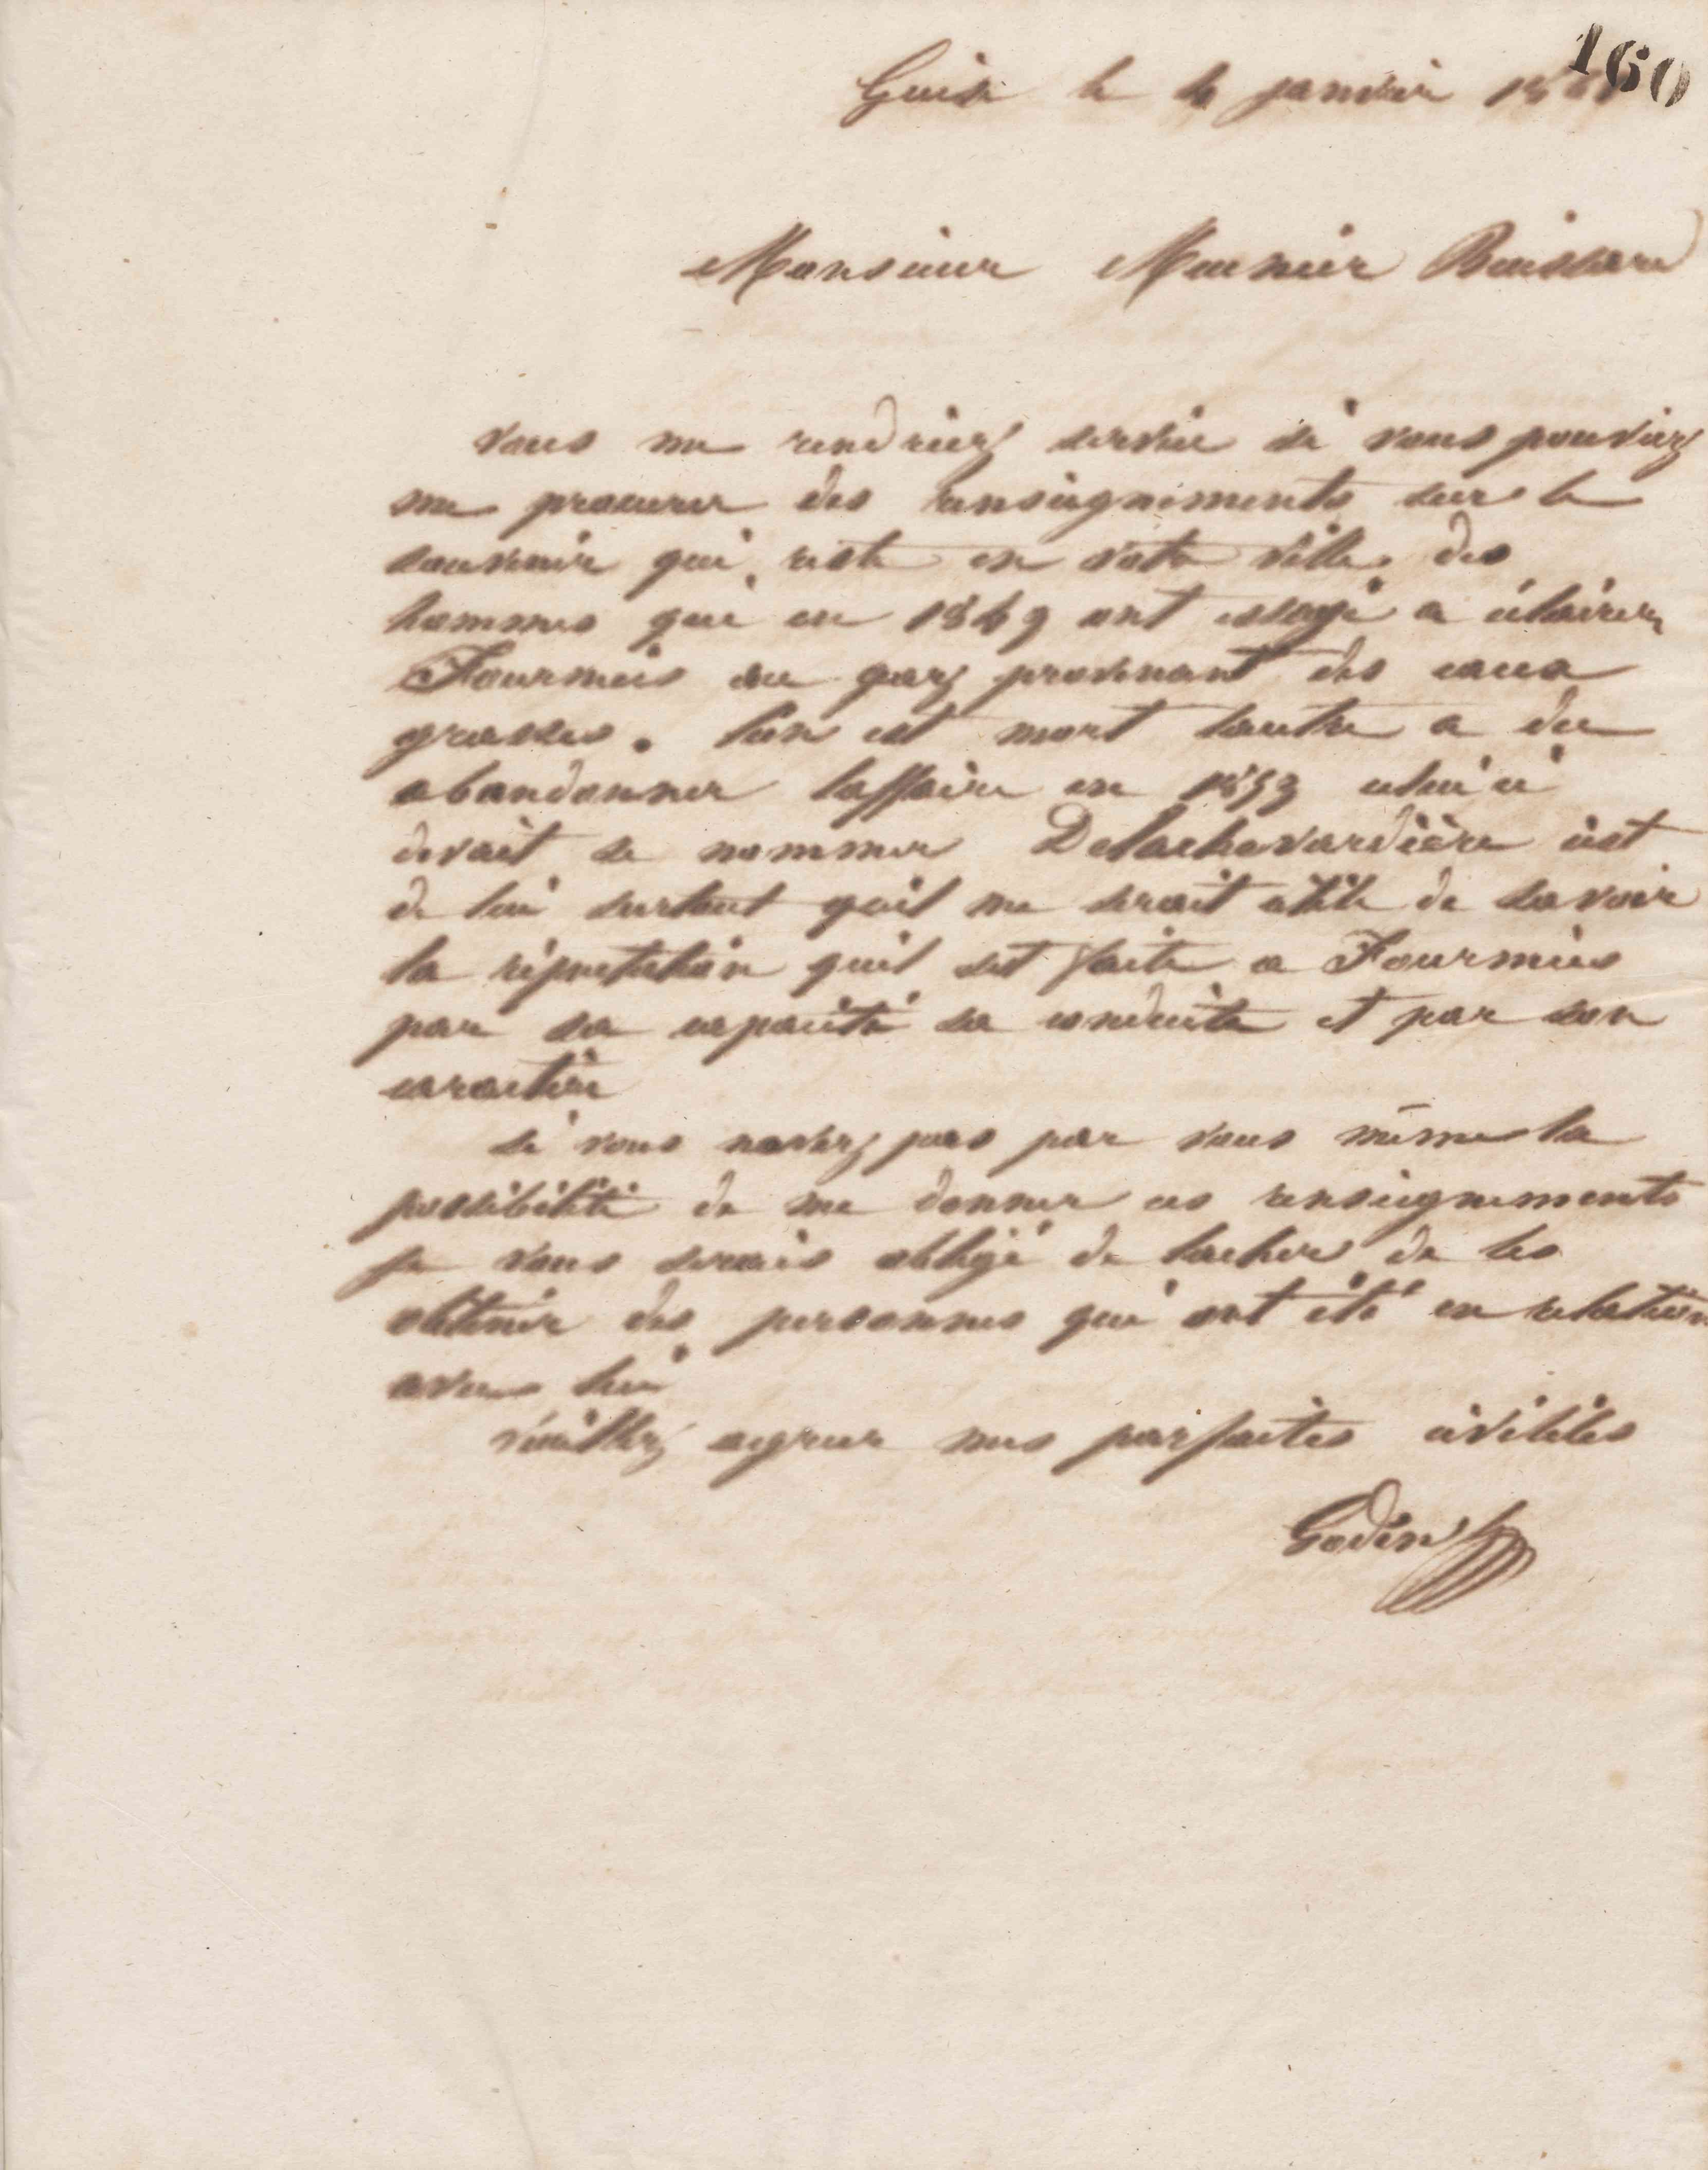 160
Guise le 4 janvier
Monsieur Meunier
vous me rendriez service si vous pouviez
me procurer des renseignements sur le
souvenir qui reste en votre ville des
hommes qui en 1849 ont essayé a éclairer
Fourmies au gaz provenant des eaux
grasses. l'un est mort lautre a du
abandonner laffaire en 1853 celui ci
devait se nommer Delachevardière cest
de lui surtout quil me serait utile de savoir
la réputation quil sest faite a Fourmies
par sa capacité sa conduite et par son
caractère
si vous navez pas par vous même la
possibilité de me donner ces renseignements
je vous serais obligé de tacher de les
obtenir des personnes qui ont été en relation
avec lui
veuillez agréer mes parfaites civilités
Godin